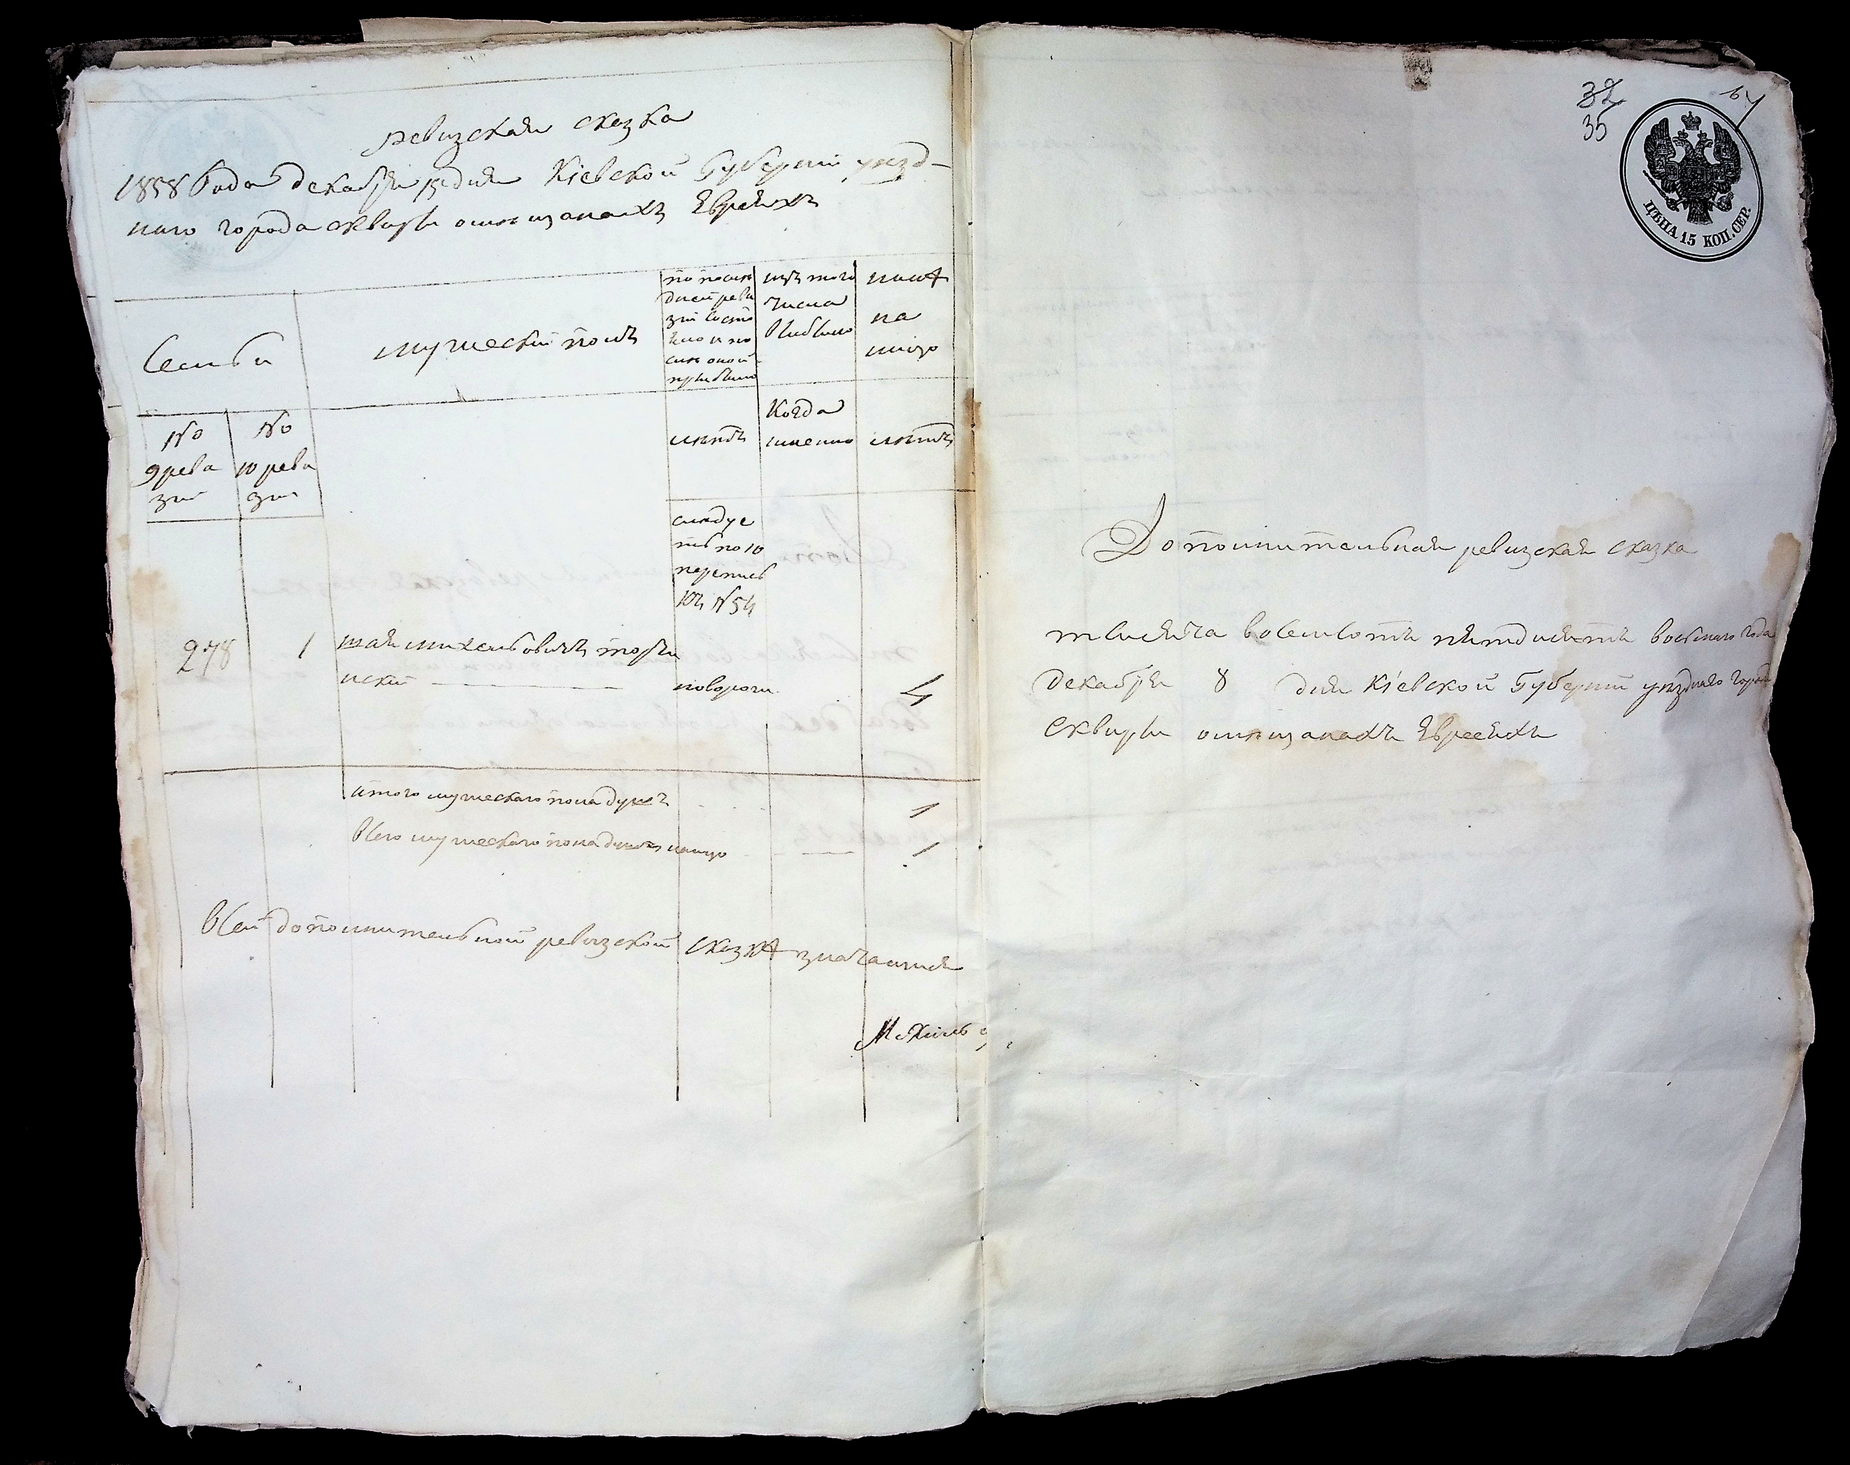 ревизская сказка
1858 Года декабря дня Кіевской Губерніи уезд-
наго города сквиры омѣщанахъ Евреяхъ
Семьи
мужескій полъ
по послѣ
дней реви
зіи состо
яло и по
слѣ оной
прибыло
изъ того
числа
выбыло
нынѣ
на
лицо
№
9 реви
зіи
№
10 реви
зіи
лѣтъ
Когда
именно
лѣтъ
слѣдуе
тъ по 10
переписѣ
къ № 54
278
1
шая михельовичъ
нскій
новорожд.
4
итого мужескаго пола душъ
1
Всего мужескаго пола душъ налицо
1
Всей дополнительной ревизской сказкѣ значащися
Мехель
32
35
ЦѢНА 15 КОП. СЕР.
Дополнительная ревизская сказка
тысяча восемсотъ пятдесятъ восьмаго года
декабря 8 дня Кіевской Губерніи уѣзднаго города
Сквиры омѣщанахъ Евреехъ